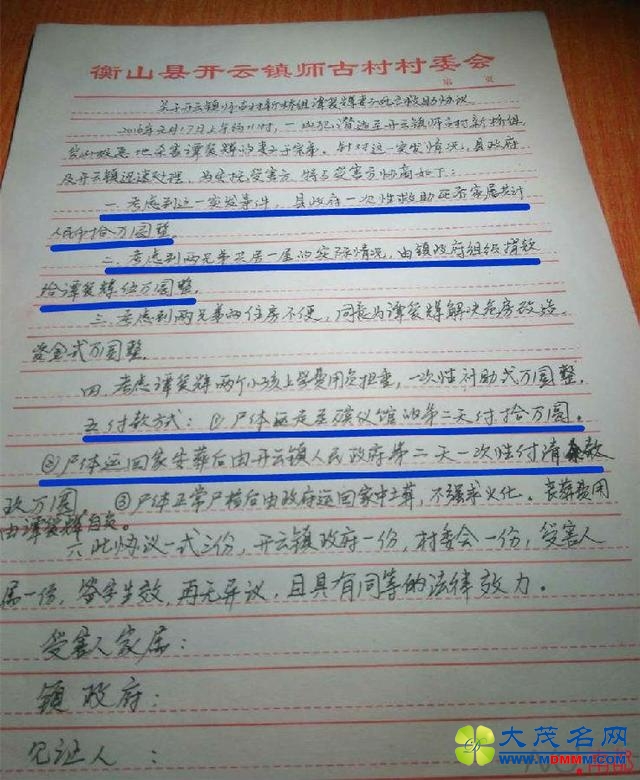 衡山县开云镇师古村村委会
第 页
关于开云镇师古村新桥组谭爱辉妻子死亡救助协议
2016年2月17日上午约11时，一凶犯潜逃至开云镇师古村新桥组
地杀害谭爱辉的妻子。针对这一突发情况，县政府
及开云镇迅速处理，为安抚受害方，特与受害方协商如下：
一、考虑到这一突发事件，县政府一次性救助死者家属共计
人民币拾万圆整。
二、考虑到两兄弟共居一屋的实际情况，由镇政府组织捐款
给谭爱辉伍万圆整。
三、考虑到两兄弟的住房不便，同意为谭爱辉解决危房改造
资金弍万圆整。
四、考虑谭爱辉两个小孩上学费用负担重，一次性补助弍万圆整，
五、付款方式：①尸体运走至殡仪馆的第二天付拾万圆。
②尸体运回家安葬后由开云镇人民政府第二天一次性付清余款
玖万圆 ③尸体正常尸检后由政府运回家中土葬，不强求火化。丧葬费用
由谭爱辉自负。
六、此协议一式三份，开云镇政府一份，村委会一份，受害人
属一份，签字生效，再无异议，且具有同等的法律效力。
受害人家属：
镇政府：
见证人：
大茂名网
MDMMM.COM